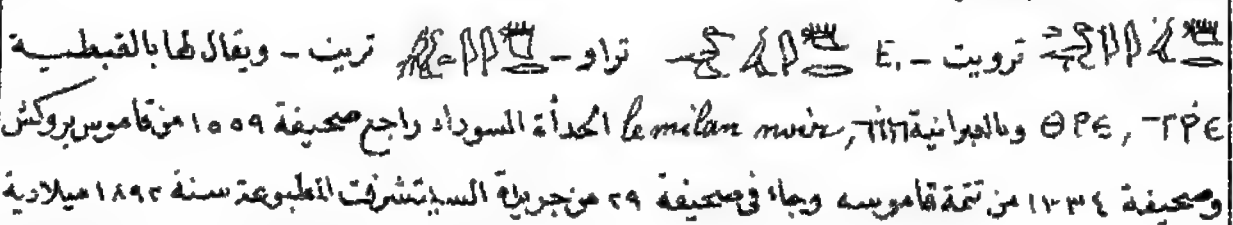 ترويت - E. تراو - تريث - ويقال لها بالقبطية
ⲧⲣⲉ , ⲑⲣⲉ وبالعبرانية le milan noir, الحدأة السوداء راجع صحيفة ١٥٥٩ من قاموس بروكش
وصحيفة ١٣٣٤ من تتمة قاموسه وجاء في صحيفة ٢٩ من جريدة السيتشرفت المطبوعة سنة ١٨٩٢ ميلادية